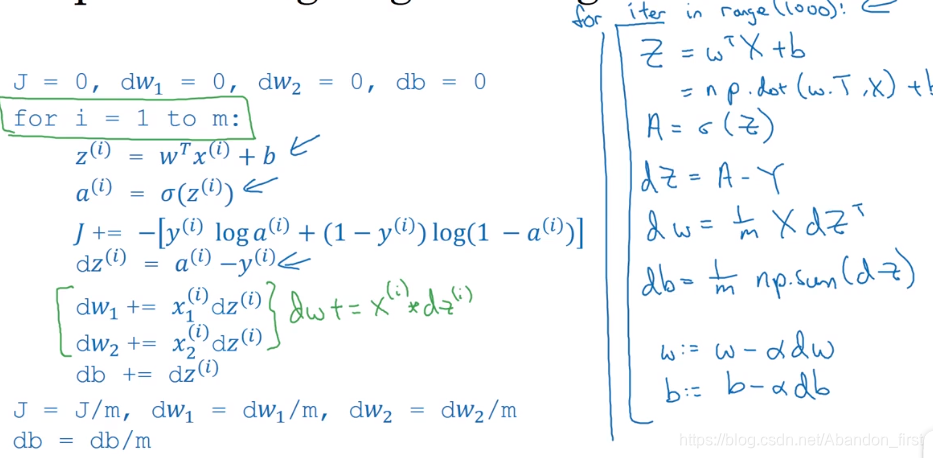 J = 0, dw₁ = 0, dw₂ = 0, db = 0
for i = 1 to m:
z⁽ⁱ⁾ = wᵀx⁽ⁱ⁾ + b
a⁽ⁱ⁾ = σ(z⁽ⁱ⁾)
J += −[y⁽ⁱ⁾ log a⁽ⁱ⁾ + (1 − y⁽ⁱ⁾) log(1 − a⁽ⁱ⁾)]
dz⁽ⁱ⁾ = a⁽ⁱ⁾ − y⁽ⁱ⁾
dw₁ += x₁⁽ⁱ⁾dz⁽ⁱ⁾
dw₂ += x₂⁽ⁱ⁾dz⁽ⁱ⁾
dw += x⁽ⁱ⁾ * dz⁽ⁱ⁾
db += dz⁽ⁱ⁾
J = J/m, dw₁ = dw₁/m, dw₂ = dw₂/m
db = db/m
for iter in range(1000):
Z = wᵀX + b
= np.dot(w.T, X) + b
A = σ(Z)
dZ = A - Y
dw = 1/m X dZᵀ
db = 1/m np.sum(dZ)
w := w - αdw
b := b - αdb
https://blog.csdn.net/Abandon_first